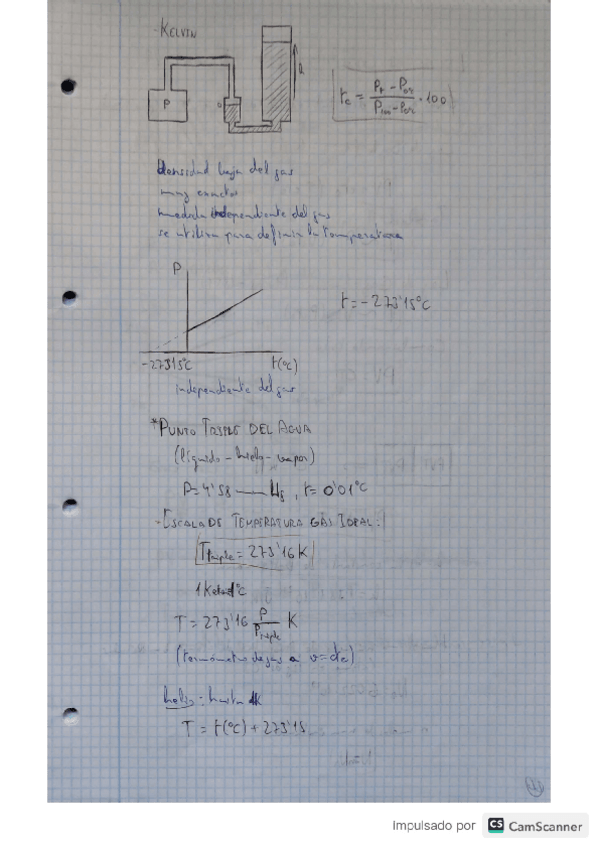 -KELVIN
P
0
h
tc = (Pt - P0r)/(P100 - P0r) · 100
densidad baja del gas
muy exactos
medida independiente del gas
se utiliza para definir la temperatura
P
t = -273'15ºC
-273'15ºC
t(ºC)
independiente del gas
*PUNTO TRIPLE DEL AGUA
(líquido - hielo - vapor)
P = 4'58 mm Hg, t = 0'01ºC
-ESCALA DE TEMPERATURA GAS IDEAL:
Ttriple = 273'16 K
T = 273'16 P/Ptriple K
(termómetro de gas a v = cte)
helio: hasta 1K
T = t(ºC) + 273'15
Impulsado por CS CamScanner